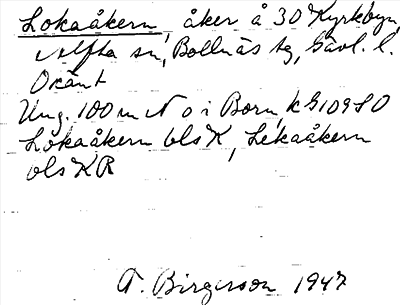 Lokaåkern, åker å 30 Kyrkbyn,
Alfta sn, Bollnäs tg, Gävl. l.
Okänt
Ung. 100 m N o i Born, k G 109 S O
Lokaåkern bls K, Lekaåkern
bls K R
A. Birgerson 1947